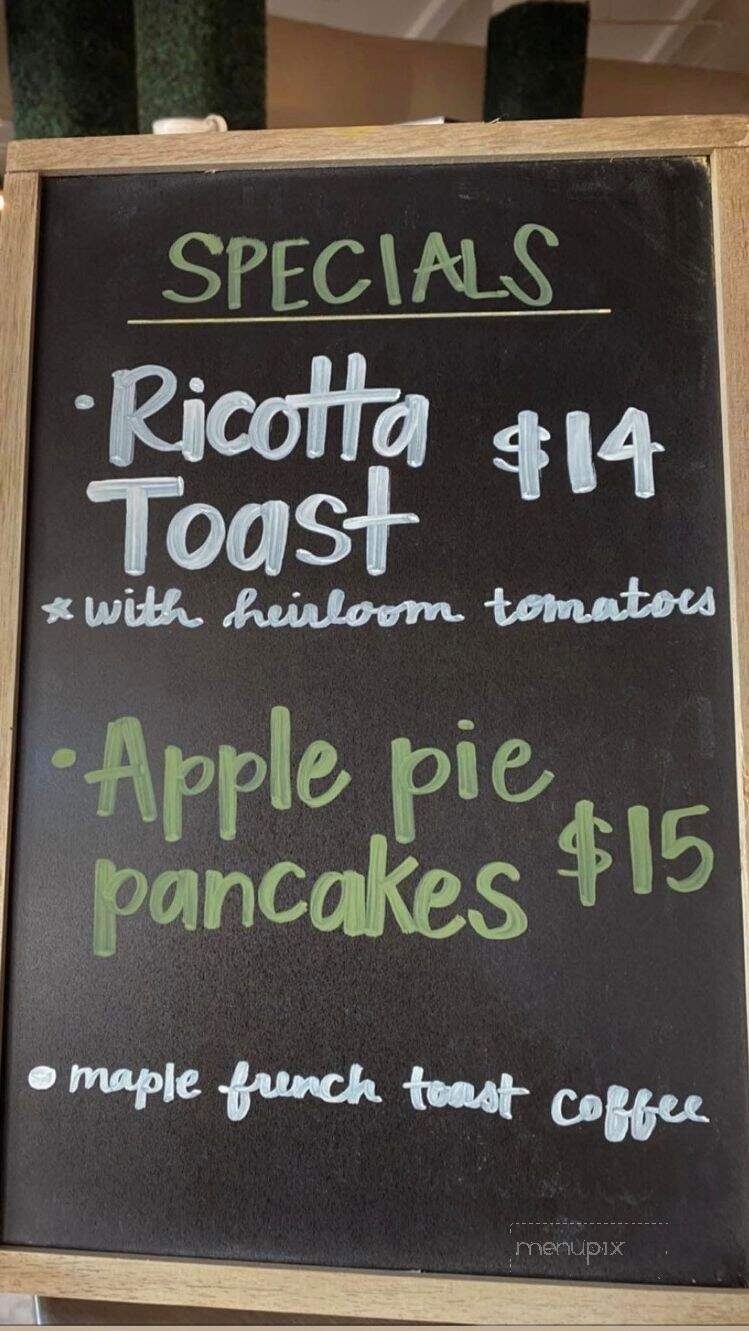 SPECIALS
· Ricotta $14
Toast
* with heirloom tomatoes
· Apple pie
pancakes $15
• maple french toast coffee
menupix